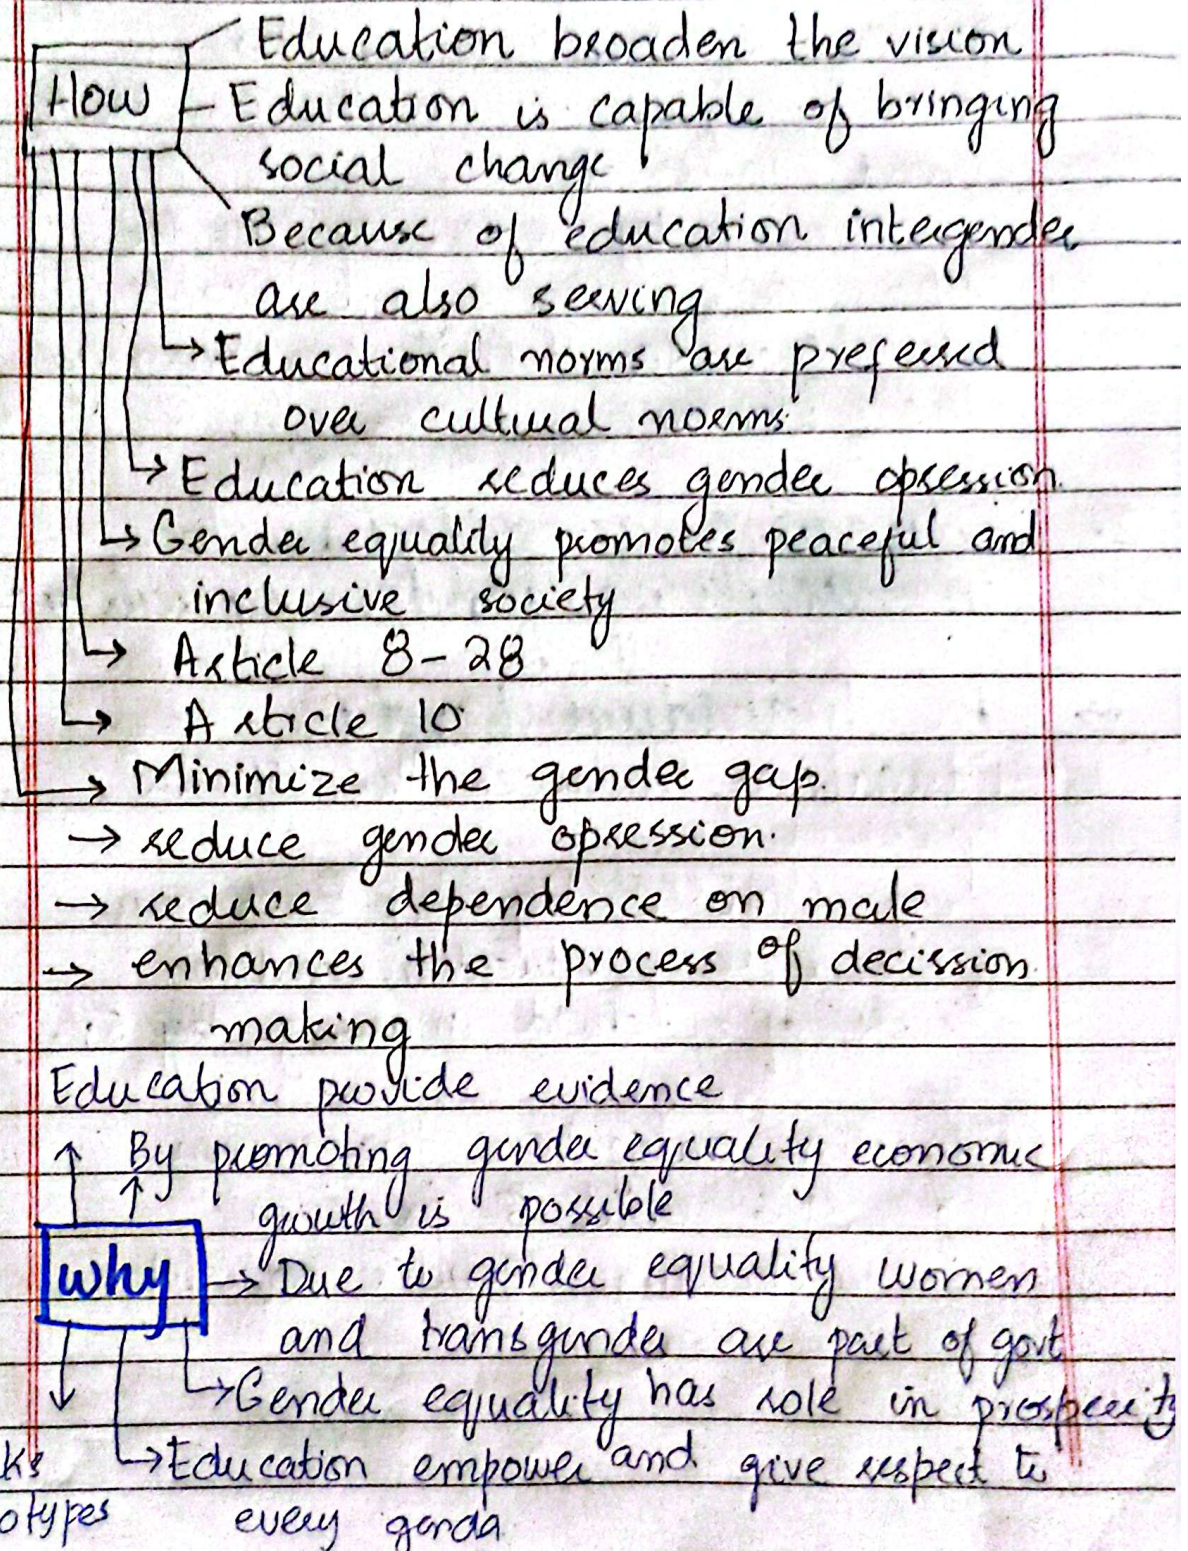 Education broaden the vision
How
Education is capable of bringing
social change
Because of education intergender
are also serving
→ Educational norms are preferred
over cultural norms.
→ Education reduces gender opression.
→ Gender equality promotes peaceful and
inclusive society
→ Article 8-28
→ Article 10
→ Minimize the gender gap.
→ reduce gender opression.
→ reduce dependence on male
→ enhances the process of decission
making
Education provide evidence
By promoting gender equality economic
growth is possible
why
→ Due to gender equality women
and transgender are part of govt
→ Gender equality has role in prosperity
→ Education empower and give respect to
otypes every gender